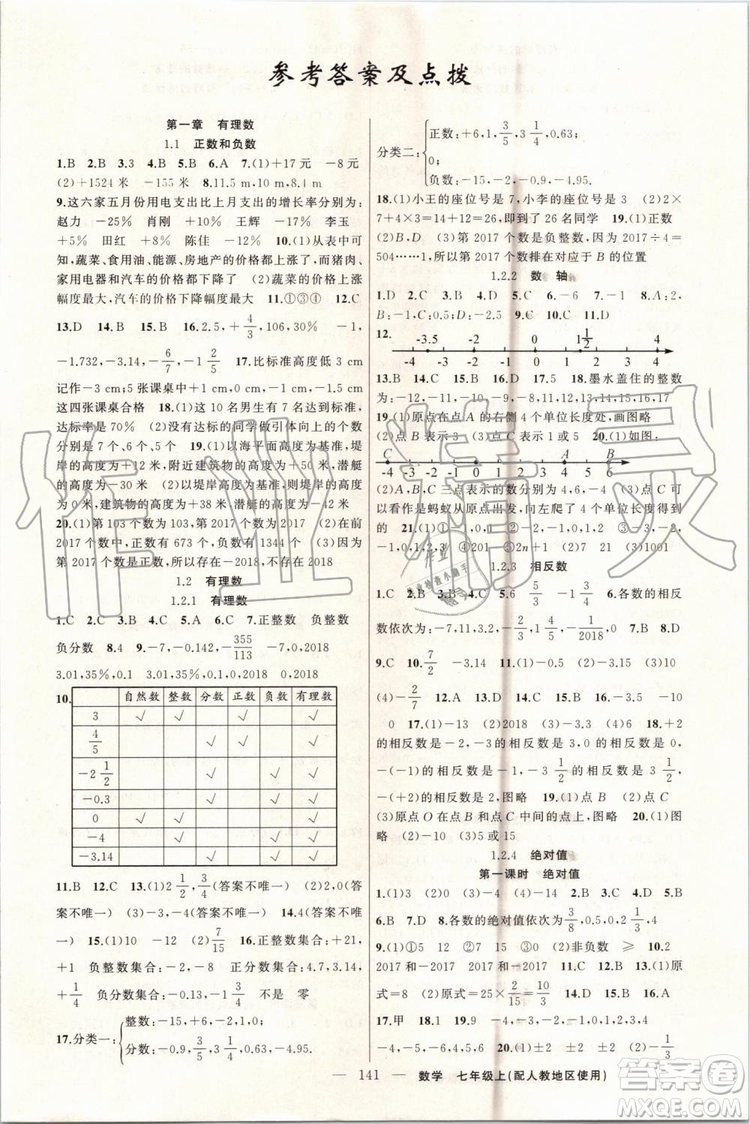 参考答案及点拨
第一章 有理数
1.1 正数和负数
1.B 2.B 3.3 4.B 5.B 6.A 7.(1)+17元 -8元
(2)+1524米 -155米 8.11.5 m,8.4 m
9.这六家五月份用电支出比上月支出的增长率分别为:
赵力 -25% 肖刚 +13% 王辉 -17% 李玉
+5% 田红 +8% 陈佳 -12% 10.(1)从表中可
知,蔬菜、食用油、能源、房地产的价格都上涨了,而猪肉、
家用电器和汽车的价格都下降了 (2)蔬菜的价格上涨
幅度最大,汽车的价格下降幅度最大 11.①③④ 12.C
13.D 14.A 15.B 16.2,5,+4/3,106,10% -1,
-1.732,-3.14,-6/7,-1 2/3 17.比标准高度低3 cm
记作-3 cm;5张课桌中有4张在规定高度范围内,所以
这四张课桌合格 18.(1)这10名男生有7名达标,
达标率是70% (2)没有达标的同学做引体向上的个数
分别是7个、6个、5个 19.(1)以海平面高度为基准,
堤岸的高度为+12米,附近建筑物的高度为+50米,潜艇
的高度为-30米 (2)以堤岸高度为基准,则堤岸的高度
为0米,建筑物的高度为+38米,潜艇的高度为-42米
20.(1)第103个数为103,第2017个数为2017 (2)在前
2017个数中,正数有1009个,负数有1008个 (3)因为
第2017个数是正数,所以不存在2018
1.2 有理数
1.2.1 有理数
1.C 2.D 3.B 4.B 5.C 6.D 7.正整数 负整数
负分数 8.4 9.-7,-0.142,-355/113 -7,0,2018
3.01,35%,0.1 3.01,35%,0.1,0,2018 0,2018
10. 自然数 整数 分数 正数 负数 有理数
3 √ √ √ √
4/5 √ √ √
-2 1/2 √ √ √
-0.3 √ √ √
0 √ √ √
-4 √ √ √
-3.14 √ √ √
11.B 12.C 13.(1)2 1/2,3/4(答案不唯一) (2)-1/2,
-0.5(答案不唯一) (3)-3,-4(答案不唯一) 14.4(答案不唯
一) 15.(1)-10 (2)7/15 16.正整数集合:+21,
+1 负整数集合:-15,-27 正分数集合:4.7,3.14,
+1 2/3 负分数集合:-0.3,-1 1/4 不是 零
17.分类一: 整数:-15,+6,-2,1,0;
分数:-0.9,3/5,3 1/4,0.63,-4.95.
分类二: 正数:+6,1,3/5,3 1/4,0.63;
0;
负数:-15,-2,-0.9,-4.95.
18.(1)小王的座位号是7,小李的座位号是3 (2)2×
7+4×3=12=26,即到了26名同学 19.(1)正数
(2)B,D (3)第2017个数是负整数,因为2017÷4=
504……1,所以第2017个数排在对应于B的位置
1.2.2 数 轴
1.D 2.C 3.D 4.C 5.C 6.-6 7.-1 8.A:2;
B:-1;C:0.5;D:-2.5 9.D 10.C 11.D
12. -3.5 -2 -1 0 1 1 1/2 4
-4 -3 -2 -1 0 1 2 3 4
13.B 14.C 15.B 16.D 17.5 18.墨水盖住的整
数是-6,-5,-4,-3,-2,13,14,15,16,17
19.(1)原点在点A的右侧4个单位长度处,画图略
(2)点B表示3,点C表示1 20.(1)如图:
C A B
-4 -3 -2 -1 0 1 2 3 4 5 6
(2)A,B,C三点表示的数分别为4,6,-4 (3)点C可
以看作是蚂蚁从原点出发,向左爬了4个单位长度得到
的 21.(1)①0,1 ②-1,0,1 ③-2,-1,0,1,2 ④-2,
-1,0,1,2,3 (2)4 1001 (3)1000 1001
1.2.3 相反数
1.C 2.D 3.C 4.A 5.2.6 6.5/3 -5/3 7.各数的相反
数依次为:-7,11,3.2,-2/3,0,-1/4,-1/2018 8.D
9.C 10.7/2 11.-3 12.A 13.C 14.(1)-3 (2)5 (3)3.5
(4)-2/7 12.A 13.D 14.C 15.A 16.-4
0 17.(1)-13 (2)2018 (3)0.2 (4)6 18.+2
的相反数是-2,-3的相反数是3,0的相反数是0,
-(-1)的相反数是-1,-3 1/2的相反数是3 1/2,
-(+2)的相反数是2,图略 19.(1)点B (2)点C
(3)原点O在点B和点C中间的点上,图略 20.(1)图
略 (2)-10 (3)5或15
1.2.4 绝对值
第一课时 绝对值
1.(1)3 (2)4 (3)-4 (4)-14 2.C 3.C 4.D 5.B
6.B 7.D 8.各数的绝对值依次为3/8,0.5,0,2 3/4
9.(1)①5 12 ②7 5 ③0 (2)非负数 ≥ 10.2
2017和-2017 11.A 12.B 13.B 14.A 15.(1)原
式=8 (2)原式=2/15×10/3=4/9 16.A
17.甲 18.1 19.9 -4,-3,-2,-1,0,1,2,3,4
-4,-5,-6,-7 4,5,6,7 0
— 141 — 数学 七年级上(配人教地区使用)
作业精灵
答案圈
MXQE.COM